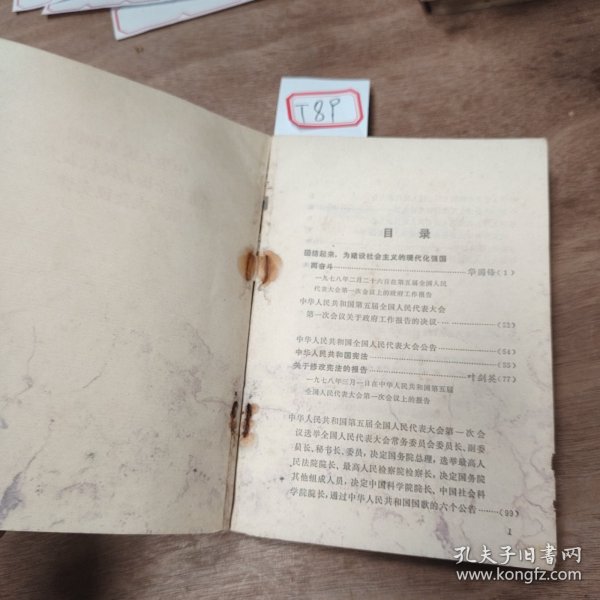 T89
目 录
团结起来，为建设社会主义的现代化强国
而奋斗……………………华国锋（1）
一九七八年二月二十六日在第五届全国人民
代表大会第一次会议上的政府工作报告
中华人民共和国第五届全国人民代表大会
第一次会议关于政府工作报告的决议……（53）
中华人民共和国全国人民代表大会公告……（54）
中华人民共和国宪法……………………（55）
关于修改宪法的报告……………叶剑英（77）
一九七八年三月一日在中华人民共和国第五届
全国人民代表大会第一次会议上的报告
中华人民共和国第五届全国人民代表大会第一次会
议选举全国人民代表大会常务委员会委员长、副委
员长、秘书长、委员，决定国务院总理，选举最高人
民法院院长、最高人民检察院检察长，决定国务院
其他组成人员，决定中国科学院院长、中国社会科
学院院长，通过中华人民共和国国歌的六个公告……（99）
1
孔夫子旧书网
www.kongfz.com